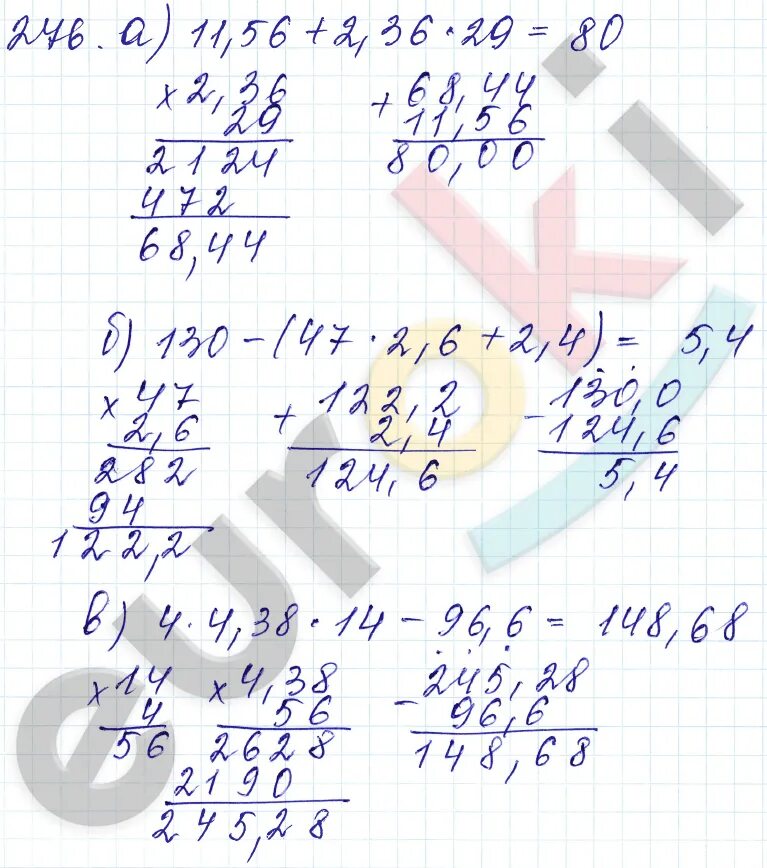 276. а) 11,56 + 2,36 · 29 = 80
× 2,36
29
2124
472
68,44
+ 68,44
11,56
80,00
б) 130 - (47 · 2,6 + 2,4) = 5,4
× 47
2,6
282
94
122,2
+ 122,2
2,4
124,6
- 130,0
124,6
5,4
в) 4 · 4,38 · 14 - 96,6 = 148,68
× 14
4
56
× 4,38
56
2628
2190
245,28
- 245,28
96,6
148,68
euroki